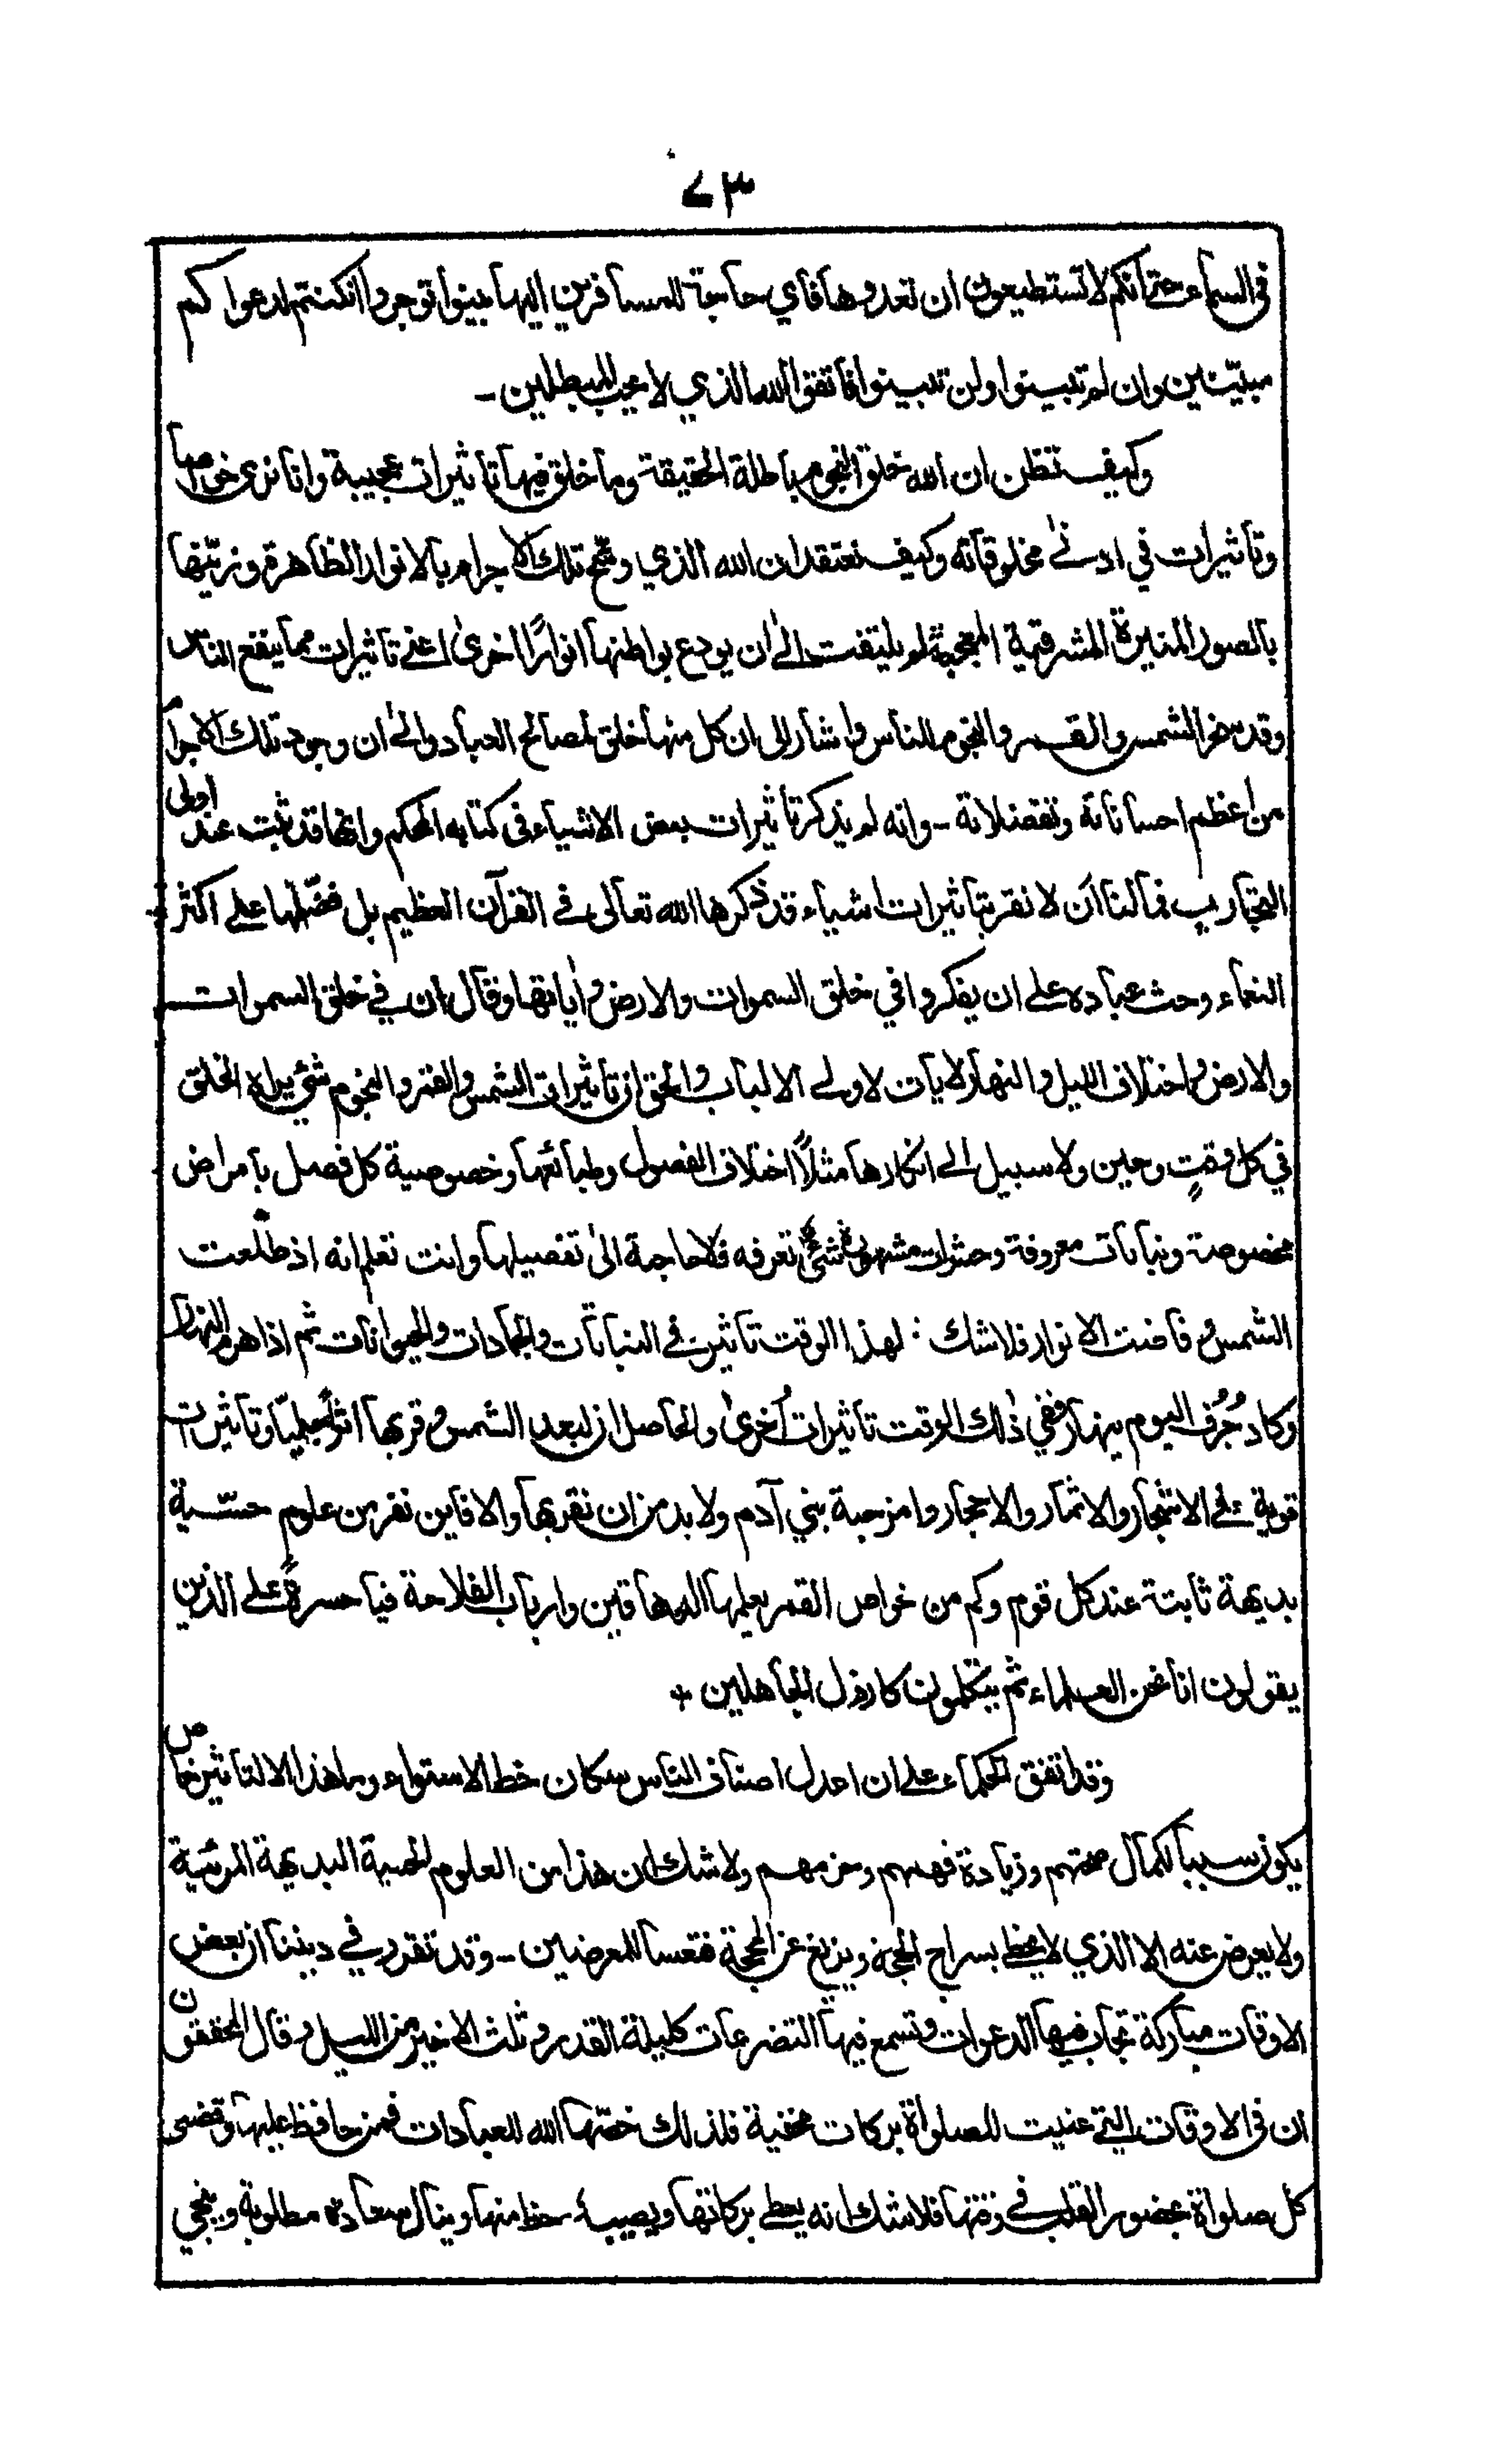 ٧٣
في السماء حتى انكم لا تستطيعون ان تعدوها فاي حاجة للمسافرين اليها بينوا توجروا ان كنتم لدعواكم
مبيّنين وان لم تبينوا ولن تبينوا فاتقوا الله الذي لا يحب المبطلين -
وكيف تظن ان الله خلق النجوم باطلة الحقيقة وما خلق فيها تاثيرات عجيبة وانا نرى خواصا
وتاثيرات في ادنى مخلوقاته وكيف نعتقد ان الله الذي وشّح تلك الاجرام بالانوار الظاهرة وزيّنها
بالصور المنيرة المشرقية المعجبة لم يلتفت الى ان يودع بواطنها انوارًا اخرى اعنى تاثيرات مما ينفع الناس
وقد سخر الشمس والقمر والنجوم للناس واشار الى ان كل منها خلق لمصالح العباد والى ان وجود تلك الاجرام
من اعظم احساناته وتفضلاته - وانه لم يذكر تاثيرات بعض الاشياء في كتابه المحكم وانها قد ثبت عند اولى
التجاريب فما لنا ان لا نقر بتاثيرات اشياء قد ذكرها الله تعالى في القرآن العظيم بل فضّلها على اكثر
النعماء وحث عباده على ان يفكروا في خلق السموات والارض وأياتها وقال ان في خلق السموات
والارض واختلاف الليل والنهار لايات لاولى الالباب والحق ان تاثيرات الشمس والقمر والنجوم شئ يراه الخلق
في كل وقتٍ وحين ولا سبيل الى انكارها مثلًا اختلاف الفصول وطبائعها وخصوصية كل فصل بامراض
مخصوصة ونباتات معروفة وحشرات مشهورة شئ تعرفه فلا حاجة الى تفصيلها وانت تعلم انه اذ طلعت
الشمس وفاضت الانوار فلا شك لهذا الوقت تاثير في النباتات والجمادات والحيوانات ثم اذا هرم النهار
وكاد جُرُف اليوم ينهار ففي ذلك الوقت تاثيرات أخرى والحاصل ان لبعد الشمس وقربها اثرًا جليًا وتاثيرات
قوية في الاشجار والاثمار والاحجار وامزجة بني آدم ولا بد من ان نقر بها والا فاين نفر من علوم حسّية
بديهة ثابتة عند كل قوم وكم من خواص القمر يعلمها الدهاقين وارباب الفلاحة فيا حسرةً على الذين
يقولون انا نحن العلماء ثم يتكلمون كارذل الجاهلين +
وقد اتفق الحكماء على ان اعدل اصناف الناس سكان خط الاستواء وما هذا الا لتاثير خاص
يكون سببا لكمال صحتهم وزيادة فهمهم وحزمهم ولا شك ان هذا من العلوم الحسية البديهة المرئية
ولا يعرض عنه الا الذي لا يحظ بسراج الحجة ويزيغ عن المحجة فتعسا للمعرضين - وقد تقرر في ديننا ان بعض
الاوقات مباركة تجاب فيها الدعوات وتسمع فيها التضرعات كليلة القدر وثلث الاخير من الليل وقال المحققون
ان في الاوقات التي عنيت للصلواة بركات مخفية فلذلك خصّها الله للعبادات فمن حافظ عليها وقضى
كل صلواة بحضور القلب في وقتها فلا شك انه يعطى بركاتها ويصيبه حظ منها وينال سعادة مطلوبة وينجي